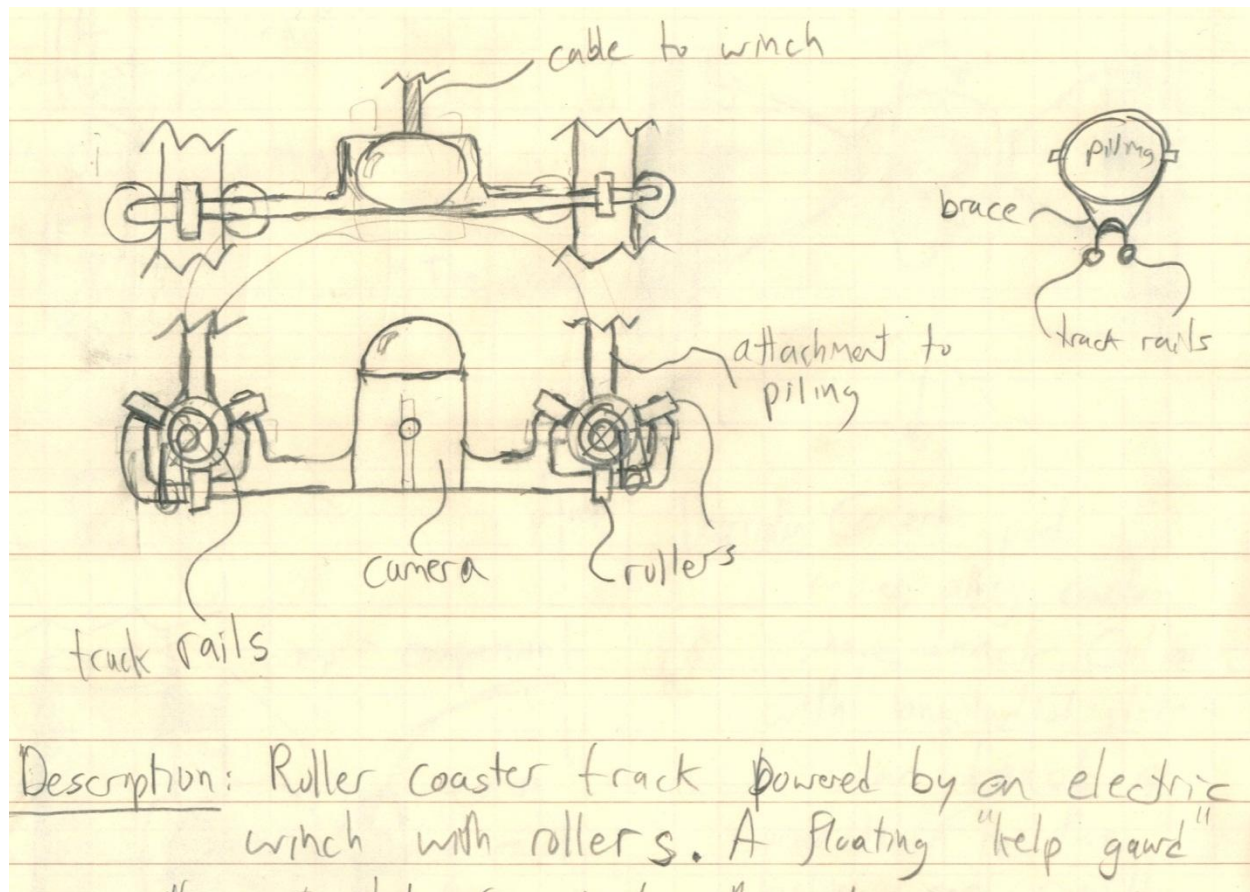 cable to winch
piling
brace
track rails
attachment to
piling
camera
rollers
track rails
Description: Roller coaster track powered by an electric
winch with rollers. A floating "kelp gaurd"